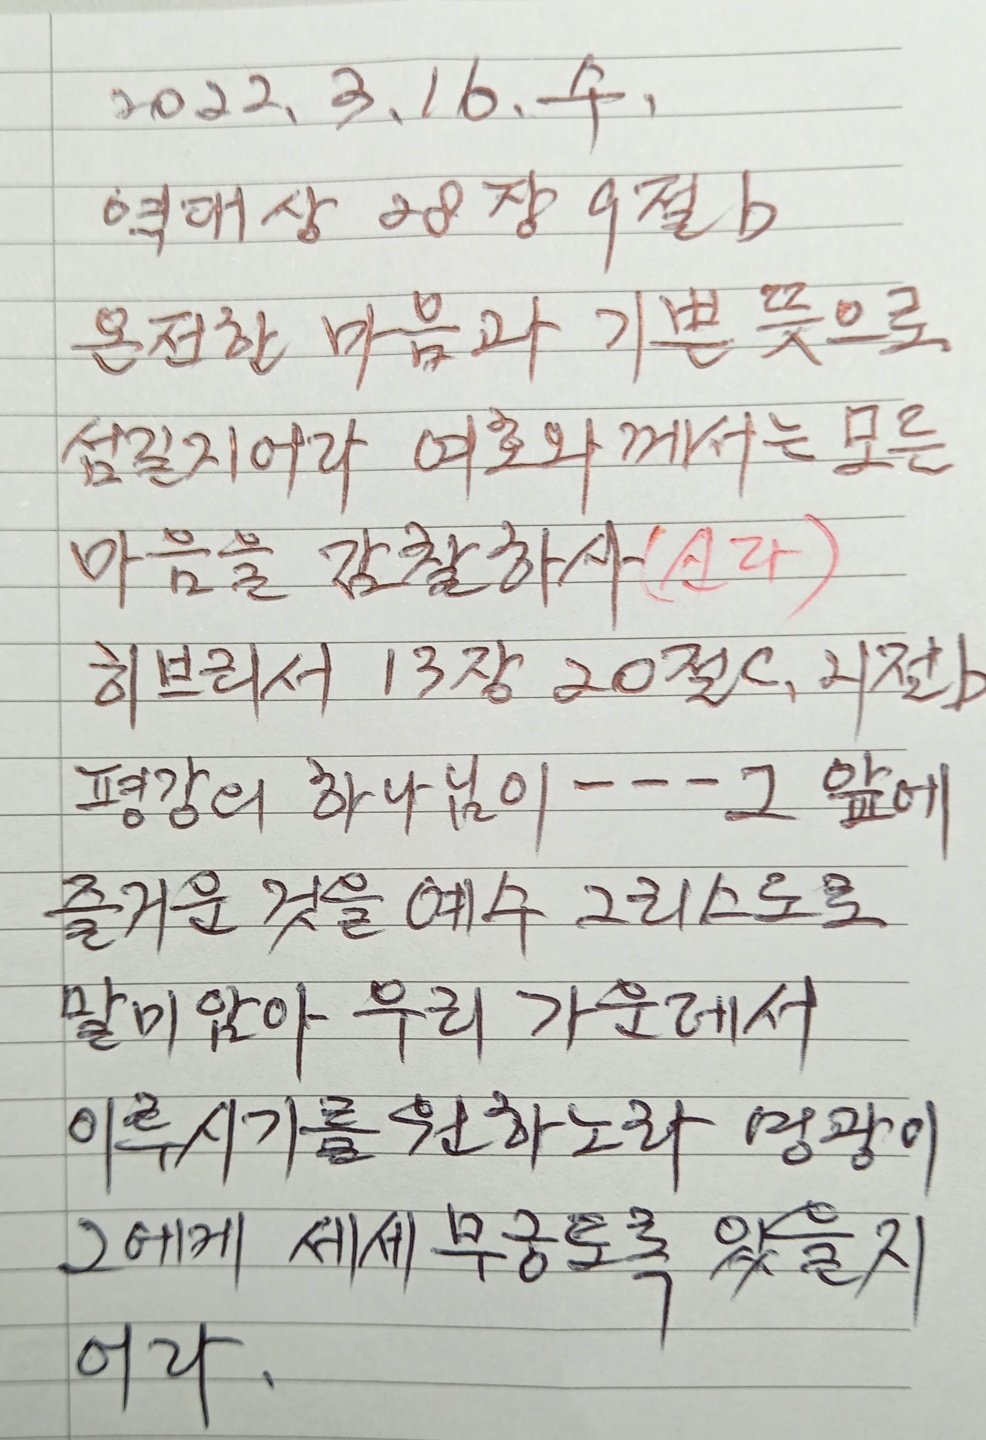 2022. 3. 16. 수.
역대상 28장 9절b
온전한 마음과 기쁜 뜻으로
섬길지어라 여호와께서는 모든
마음을 감찰하사(신다)
히브리서 13장 20절c, 21절b
평강의 하나님이 --- 그 앞에
즐거운 것을 예수 그리스도로
말미암아 우리 가운데서
이루시기를 원하노라 영광이
그에게 세세 무궁토록 있을지
어라.